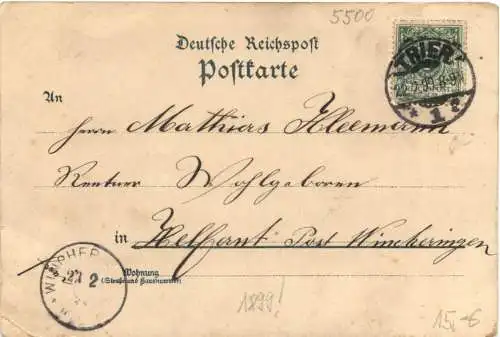 5500
Deutsche Reichspost
Postkarte
TRIER
* 1 *
An
Herrn Mathias Kleemann
Rentner Wohlgeboren
in Helfant Post Wincheringen
Wohnung
(Straße und Hausnummer)
2
1899!
15,-6